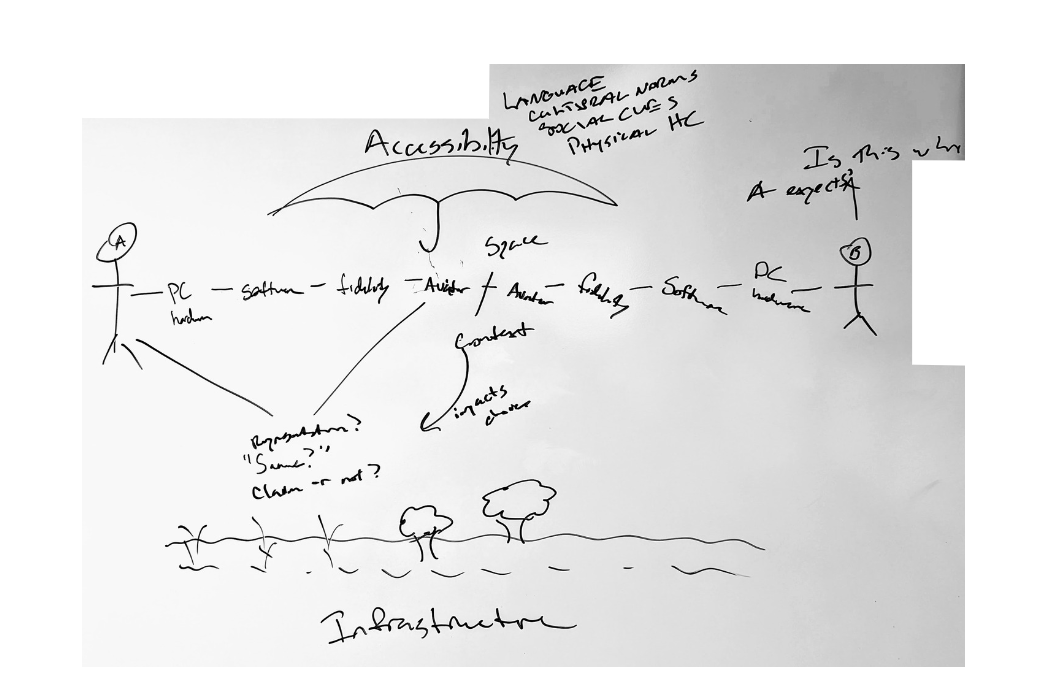 LANGUAGE
CULTURAL NORMS
SOCIAL CUES
PHYSICAL HC
Accessibility
Is this who
A expects?
A
B
Space
PC
hardware
software
fidelity
Avatar
/
Avatar
fidelity
Software
PC
hardware
Context
impacts
choice
Representation?
"Same?"
Claim or not?
Infrastructure